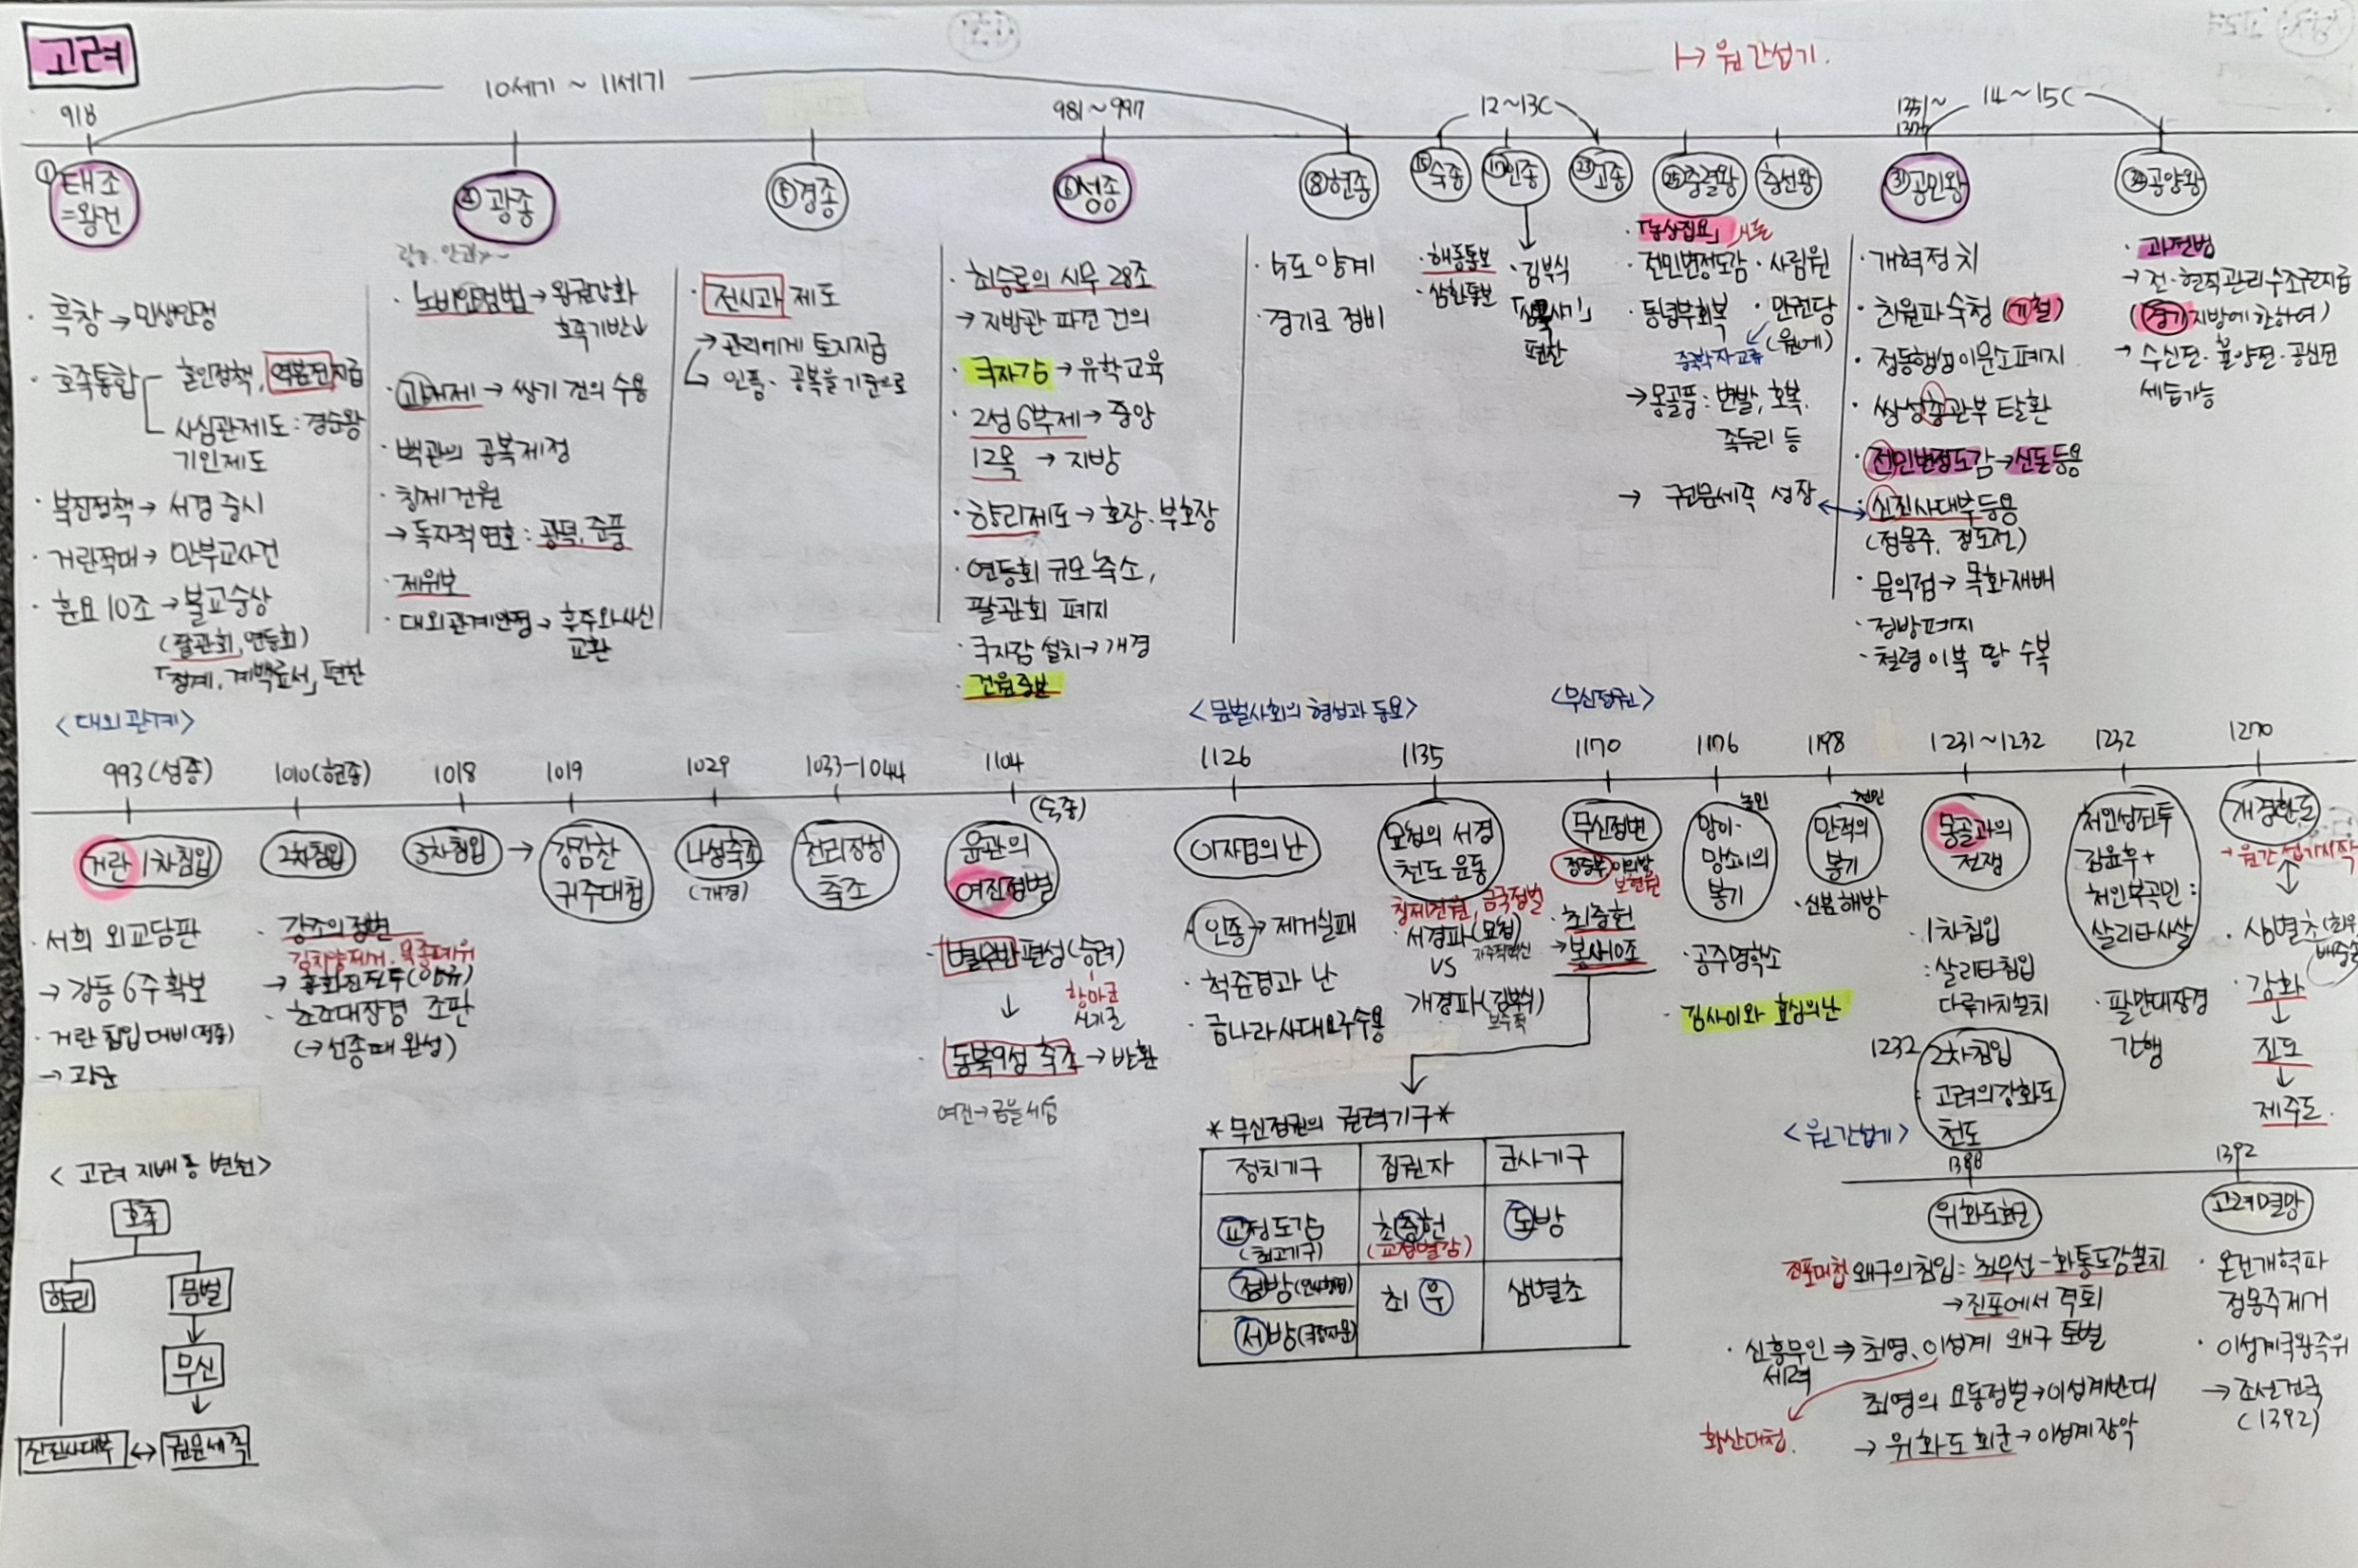 고려
10세기 ~ 11세기
↦ 원 간섭기.
918
981 ~ 997
12~13C
1351~
14~15C
① 태조
=왕건
④ 광종
⑤ 경종
⑥ 성종
⑧ 현종
⑮ 숙종
⑰ 인종
㉓ 고종
㉕ 충렬왕
충선왕
㉛ 공민왕
㉞ 공양왕
· 흑창 → 민생안정
· 호족통합
혼인정책, 역분전지급
사심관제도 : 경순왕
기인제도
· 북진정책 → 서경 중시
· 거란적대 → 만부교사건
· 훈요 10조 → 불교숭상
(팔관회, 연등회)
「정계, 계백료서」 편찬
· 노비안검법 → 왕권강화
호족기반↓
· 과거제 → 쌍기 건의 수용
· 백관의 공복제정
· 칭제건원
→ 독자적 연호 : 광덕, 준풍
· 제위보
· 대외관계안정 → 후주와사신
교환
· 전시과 제도
→ 관리에게 토지지급
→ 인품 · 공복을 기준으로
· 최승로의 시무 28조
→ 지방관 파견 건의
· 국자감 → 유학교육
· 2성 6부제 → 중앙
12목 → 지방
· 향리제도 → 호장 · 부호장
· 연등회 규모 축소,
팔관회 폐지
· 국자감 설치 → 개경
· 건원중보
· 5도 양계
· 경기로 정비
· 해동통보
· 삼한통보
· 김부식
「삼국사기」
편찬
· 「농상집요」
· 전민변정도감
· 동녕부회복
· 사림원
· 만권당
(원에)
중국학자교류
→ 몽골풍 : 변발, 호복,
족두리 등
→ 권문세족 성장
· 개혁정치
· 친원파 숙청 (기철)
· 정동행성이문소폐지
· 쌍성총관부 탈환
· 전민변정도감 → 신돈등용
· 신진사대부등용
(정몽주, 정도전)
· 문익점 → 목화재배
· 정방폐지
· 철령이북 땅 수복
· 과전법
→ 전·현직관리수조권지급
(경기지방에한하여)
→ 수신전 · 휼양전 · 공신전
세습가능
<대외관계>
<문벌사회의 형성과 동요>
<무신정권>
993 (성종)
1010 (현종)
1018
1019
1029
1033-1044
1104
(숙종)
1126
1135
1170
1176
1198
1231 ~ 1232
1232
1270
거란 1차침입
2차침입
3차침입 →
강감찬
귀주대첩
나성축조
(개경)
천리장성
축조
윤관의
여진정벌
이자겸의 난
묘청의 서경
천도 운동
무신정변
정중부 이의방
보현원
농민
망이·
망소이의
봉기
천민
만적의
봉기
몽골과의
전쟁
처인성전투
김윤후+
처인부곡민 :
살리타사살
개경환도
→ 원간섭기시작
· 서희 외교담판
→ 강동 6주 확보
· 거란침입대비 (정종)
→ 광군
· 강조의정변
김치양제거 · 목종폐위
→ 흥화진전투 (양규)
· 초조대장경 조판
(→ 선종때 완성)
· 별무반편성 (승려)
항마군
신기군
↓
· 동북9성 축조 → 반환
여진→금을 세움
인종 → 제거실패
· 척준경과 난
· 금나라사대요구수용
칭제건원, 금국정벌
· 서경파 (묘청)
자주적혁신
VS
개경파 (김부식)
보수적
· 최충헌
→ 봉사10조
· 공주명학소
· 김사미와 효심의난
· 신분해방
· 1차침입
: 살리타침입
다루가치설치
1232
2차침입
· 고려의 강화도
천도
· 팔만대장경
간행
· 삼별초 (최우,
배중손
· 강화
↓
진도
↓
제주도.
* 무신정권의 권력기구 *
정치기구
집권자
군사기구
교정도감
(최고기구)
최충헌
(교정별감)
도방
정방 (인사행정)
서방
최우
삼별초
<고려 지배층 변천>
호족
향리
문벌
무신
신진사대부 ↔ 권문세족
<원 간섭기>
1388
1392
위화도회군
고려멸망
진포대첩
왜구의침입 : 최무선 - 화통도감설치
→ 진포에서 격퇴
· 신흥무인 ⇒ 최영, 이성계 왜구 토벌
세력
황산대첩.
최영의 요동정벌 → 이성계반대
→ 위화도 회군 → 이성계 장악
· 온건개혁파
정몽주제거
· 이성계국왕즉위
→ 조선건국
(1392)